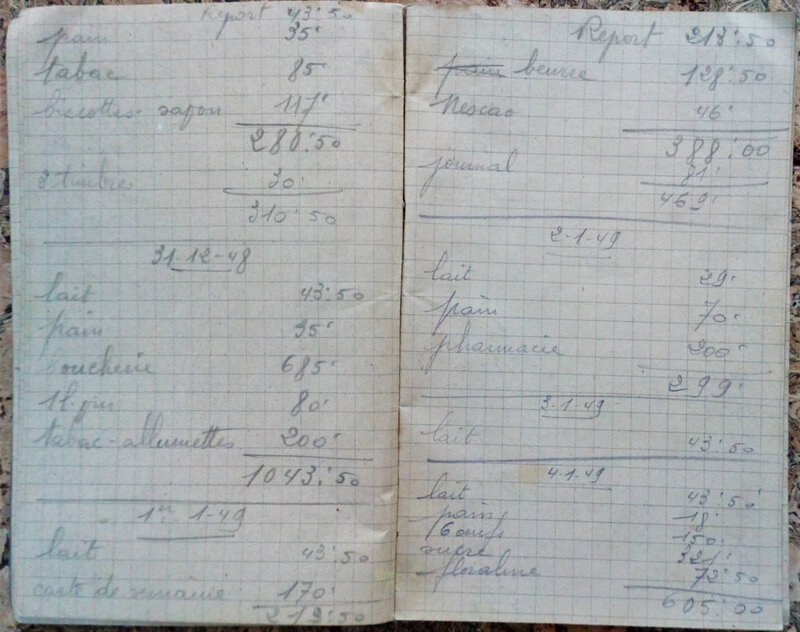 Report 43.50
pain 35.
tabac 85.
biscottes. savon 117.
280.50
3 timbres 30.
310.50
31-12-48
lait 43.50
pain 35.
boucherie 685.
1l. 80.
tabac-allumettes 200.
1043.50
1er 1-49
lait 43.50
carte de semaine 170.
213.50
Report 213.50
pain beurre 128.50
Nescao 46.
388.00
journal 81.
469.
2-1-49
lait 29.
pain 70.
pharmacie 200.
299.
3-1-49
lait 43.50
4-1-49
lait 43.50
pain 18.
6 oeufs 150.
sucre 321.
floraline 72.50
605.00